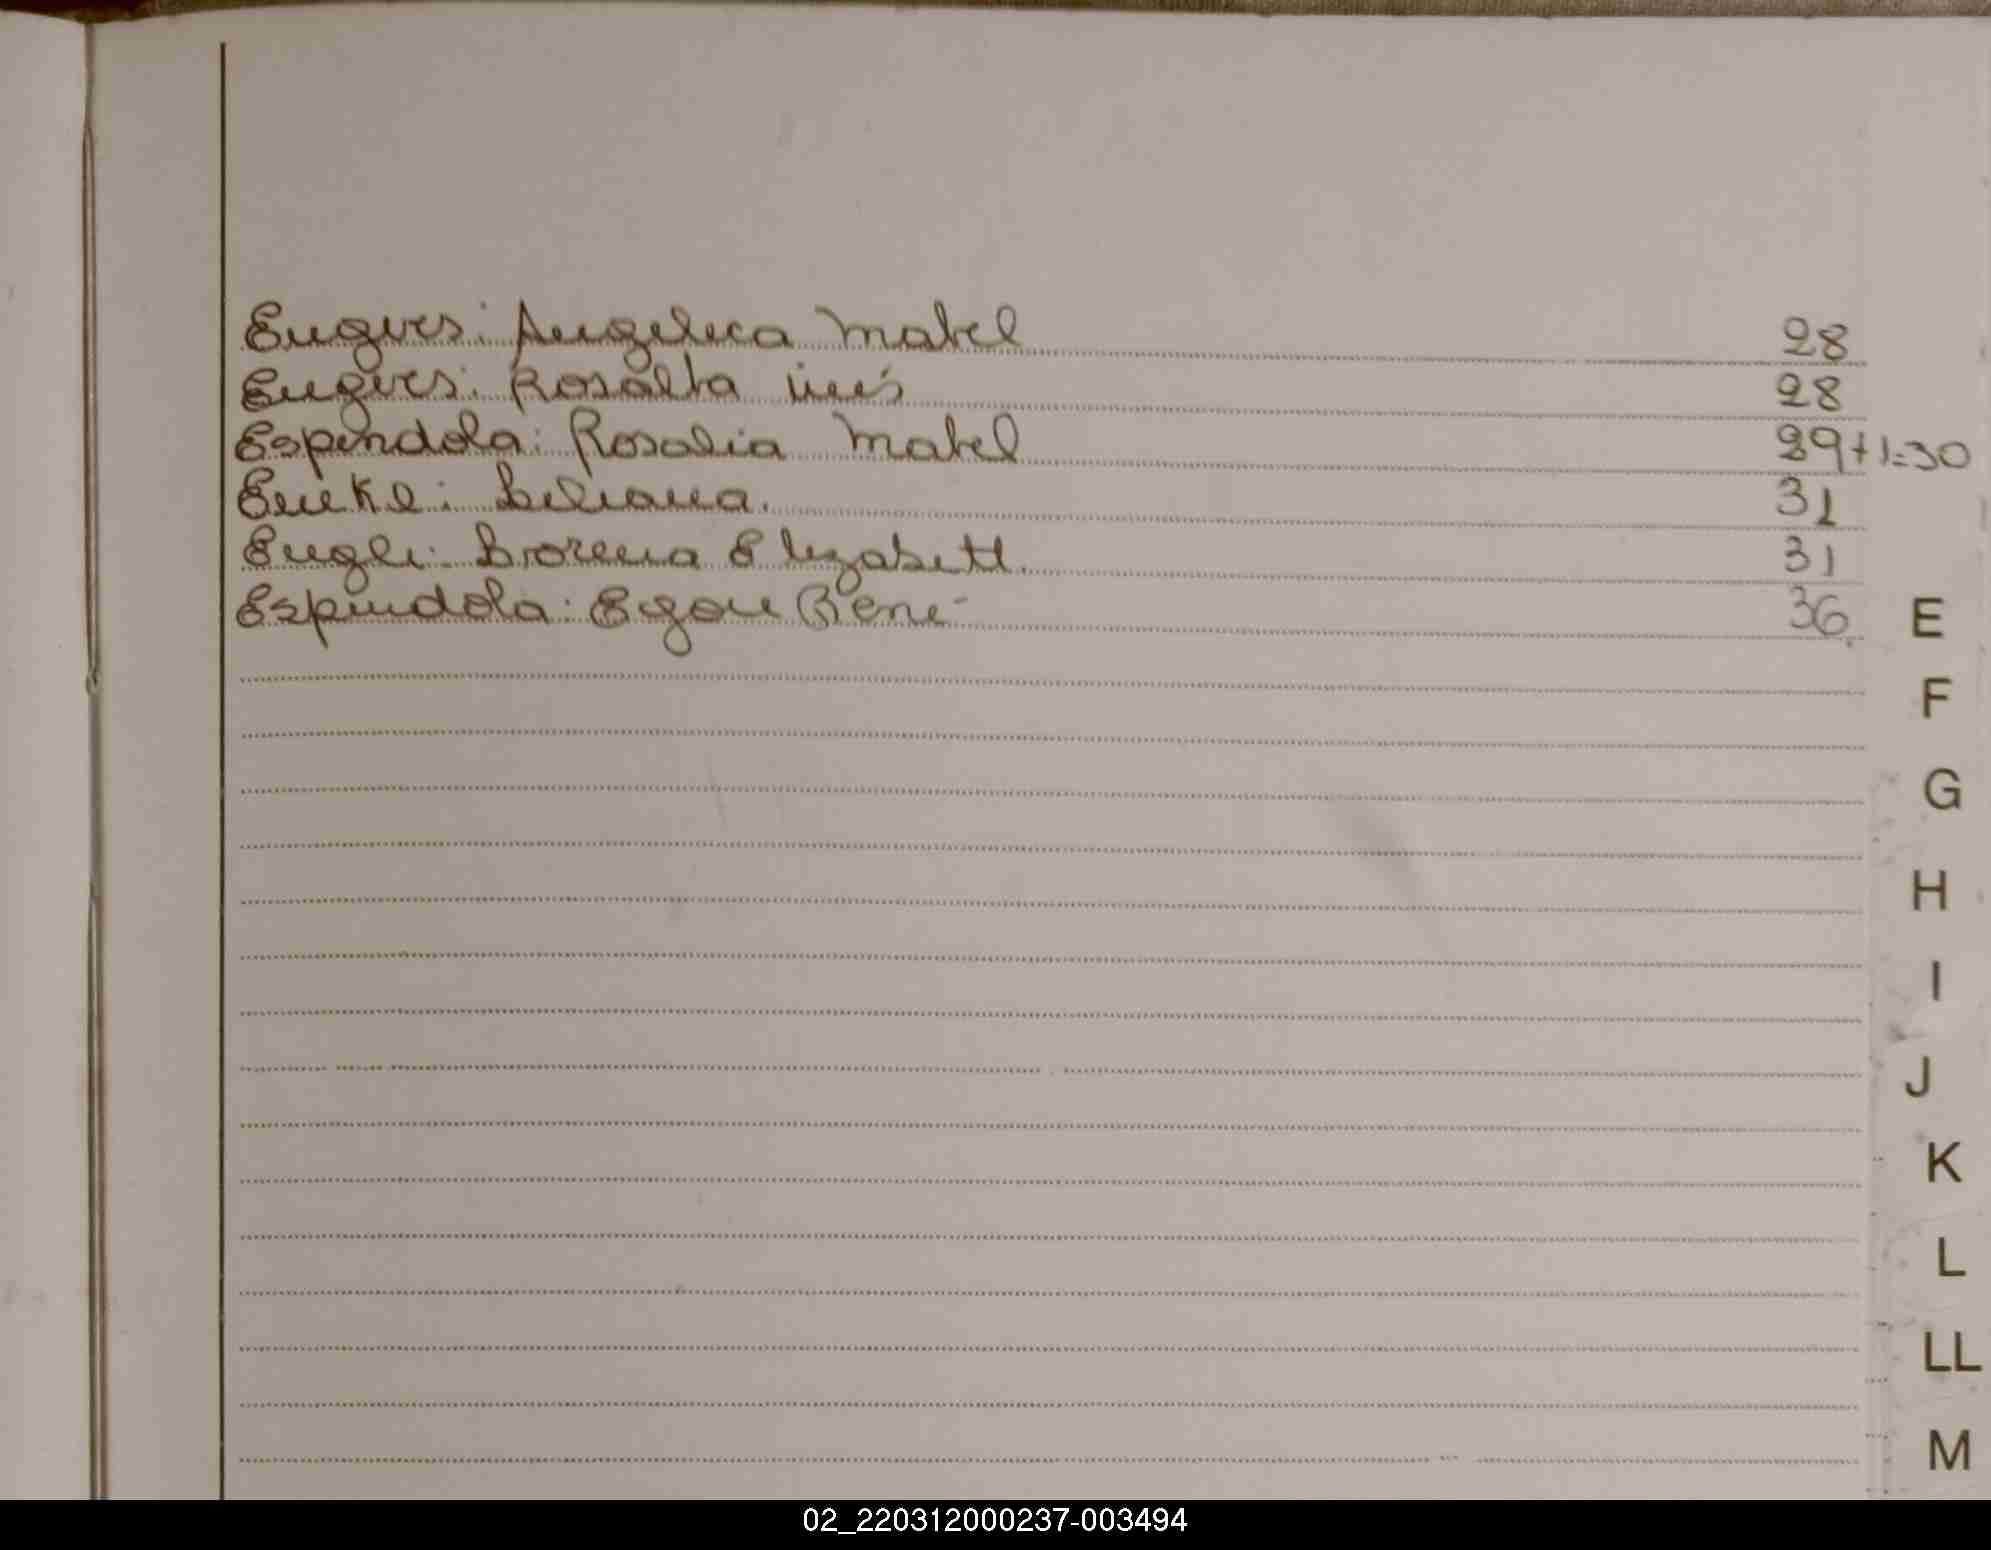 Engers: Angelica Mabel 28
Engers: Rosalba Inés 28
Espindola: Rosalia Mabel 29+1=30
Enkl: Liliana. 31
Engli: Lorena Elizabett. 31
Espindola: Egon René 36.
E
F
G
H
I
J
K
L
LL
M
02_220312000237-003494